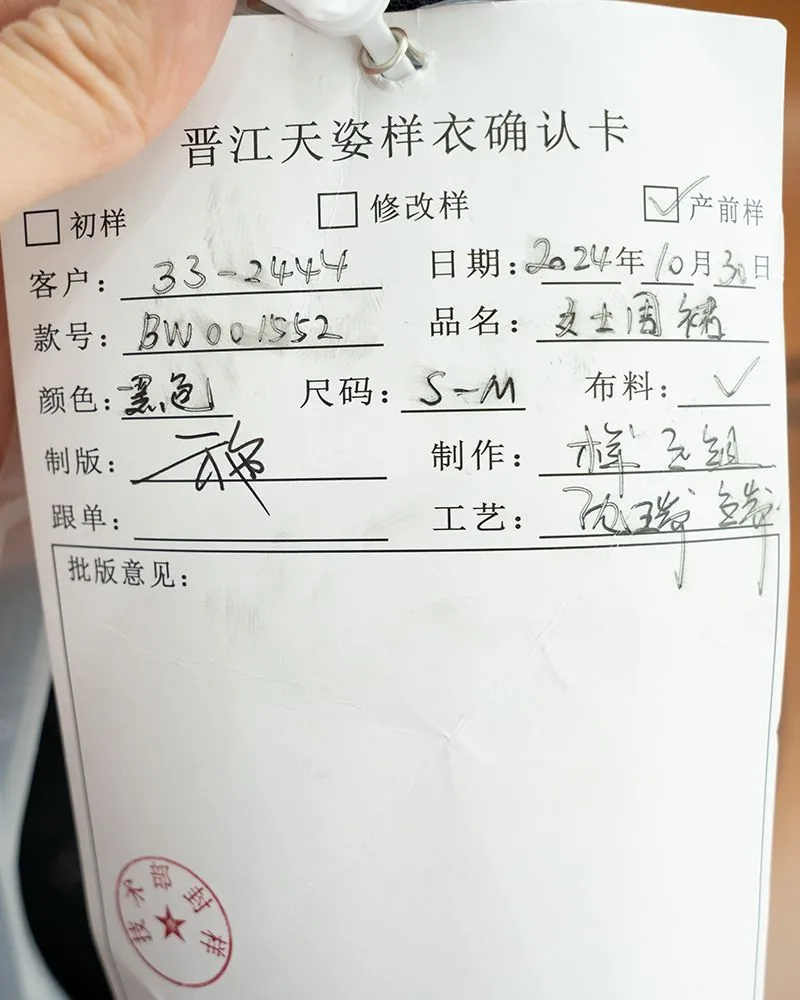 晋江天姿样衣确认卡
□ 初样 □ 修改样 ☑ 产前样
客户： 33-2444 日期：2024年10月30日
款号： BW001552 品名： 女士周裙
颜色：黑色 尺码： S-M 布料： ✓
制版： 制作： 样衣组
跟单： 工艺：
批版意见：
技术部封样